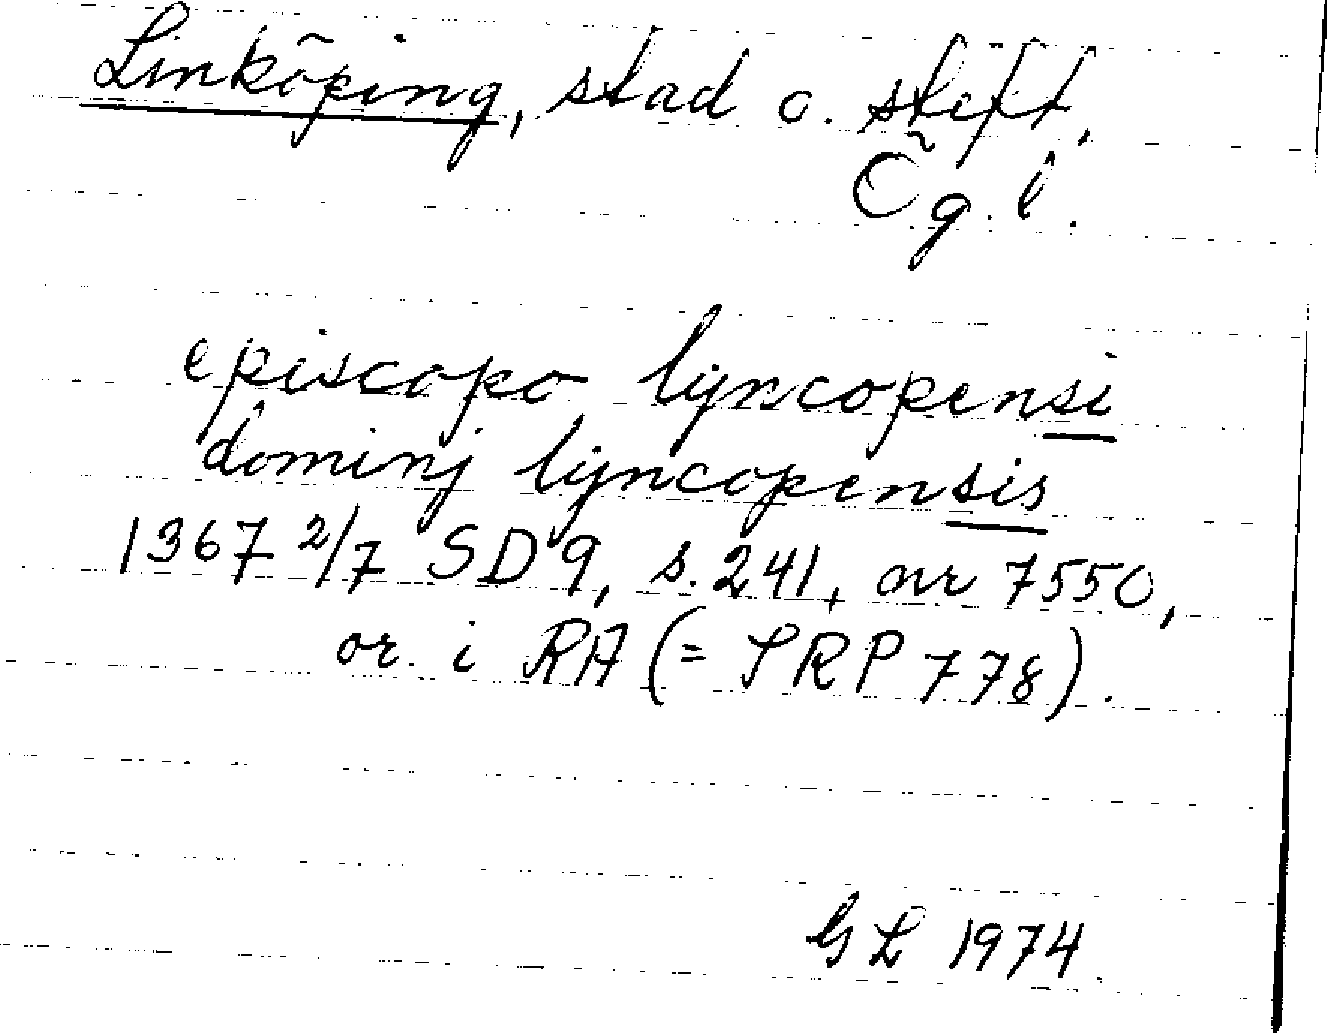 Linköping, stad o. stift,
Ög. l.
episcopo lyncopensi
dominj lyncopensis
1367 2/7 SD 9, s. 241, nr 7550,
or. i RA (= SRP 778).
GL 1974.